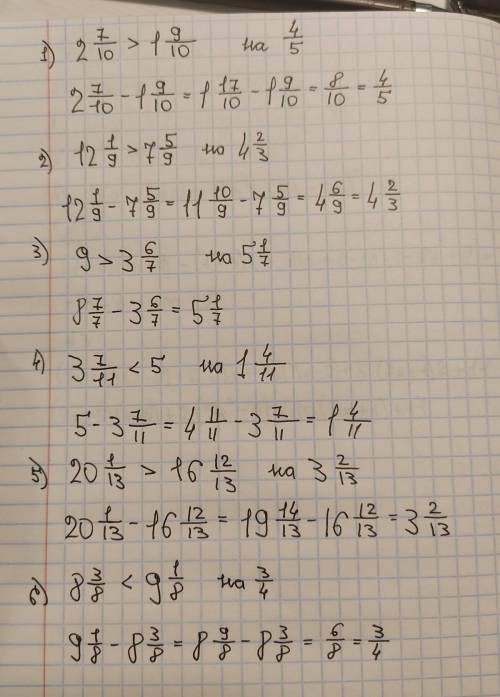 1) 2 7/10 > 1 9/10 на 4/5
2 7/10 - 1 9/10 = 1 17/10 - 1 9/10 = 8/10 = 4/5
2) 12 1/9 > 7 5/9 на 4 2/3
12 1/9 - 7 5/9 = 11 10/9 - 7 5/9 = 4 6/9 = 4 2/3
3) 9 > 3 6/7 на 5 1/7
8 7/7 - 3 6/7 = 5 1/7
4) 3 7/11 < 5 на 1 4/11
5 - 3 7/11 = 4 11/11 - 3 7/11 = 1 4/11
5) 20 1/13 > 16 12/13 на 3 2/13
20 1/13 - 16 12/13 = 19 14/13 - 16 12/13 = 3 2/13
6) 8 3/8 < 9 1/8 на 3/4
9 1/8 - 8 3/8 = 8 9/8 - 8 3/8 = 6/8 = 3/4